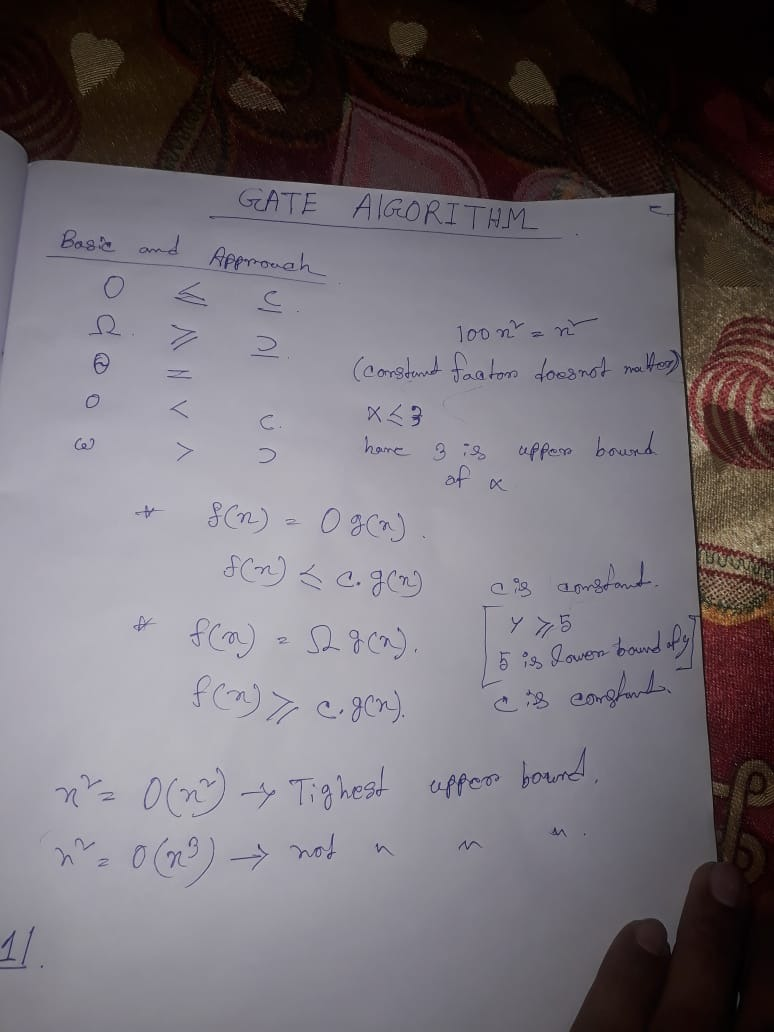 GATE AlGORITHM
Basic and Approach
O ≤ ⊆.
Ω. ≥ ⊇.
100n² = n²
θ =
(constant factor does not matter)
o < ⊂.
x ≤ 3
ω > ⊃
here 3 is upper bound
of x
* f(n) = O g(n).
f(n) ≤ c. g(n) c is constant.
* f(n) = Ω g(n).
[y ≥ 5
5 is lower bound of y]
f(n) ≥ c. g(n). c is constant.
n² = O(n²) → Tighest upper bound.
n² = O(n³) → not " " ".
1/.